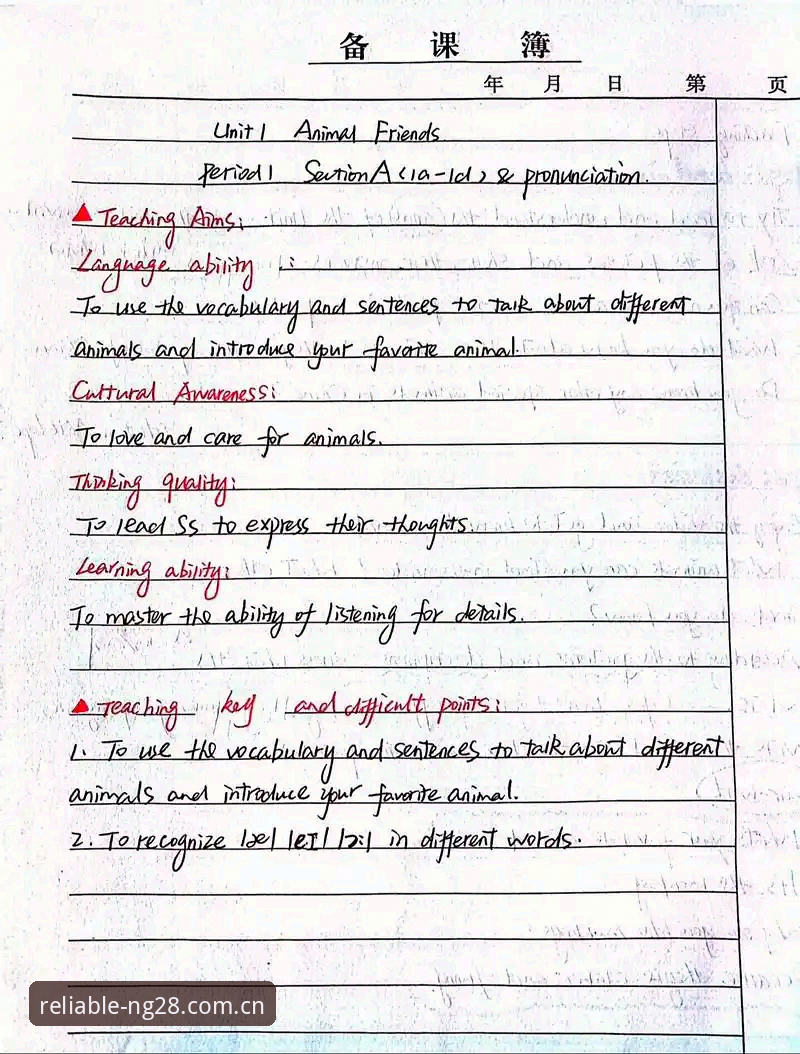 备 课 簿
年 月 日 第 页
Unit 1 Animal Friends
Period 1 Section A (1a-1d) & pronunciation.
▲ Teaching Aims:
Language ability :
To use the vocabulary and sentences to talk about different
animals and introduce your favorite animal.
Cultural Awareness:
To love and care for animals.
Thinking quality:
To lead Ss to express their thoughts.
Learning ability:
To master the ability of listening for details.
▲ Teaching key and difficult points:
1. To use the vocabulary and sentences to talk about different
animals and introduce your favorite animal.
2. To recognize |æ| |eɪ| |ɔː| in different words.
reliable-ng28.com.cn